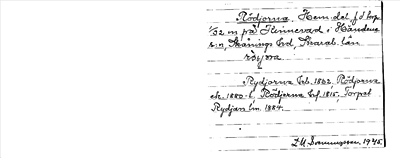 Rödjorna. Hem.del, f.d. torp
1/32 m på Kinnevad i Händene
s:n, Skånings hd, Skarab. län
röjora
Rydjorna hfl. 1802, Rödjorna
ek. 1880-t. Rödjerna hfl. 1815, Torpet
Rydjan lm. 1884.
1945